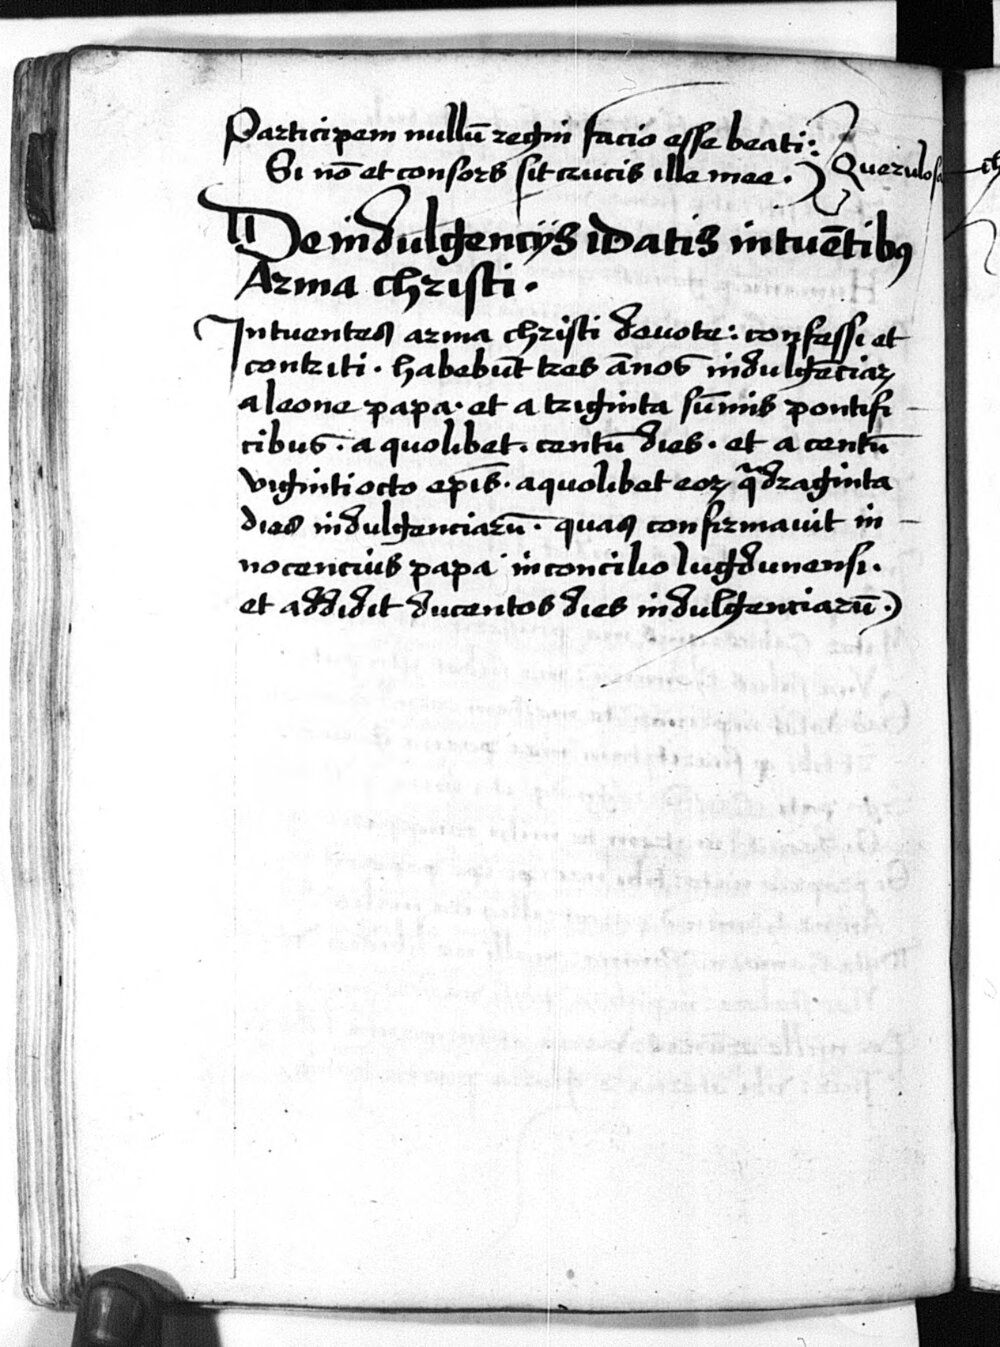 Participem nullū regni facio esse beati:
Si nō et consors sit crucis ille mee. Querulosa
De indulgencijs datis intuētibꝰ
Arma christi.
Intuentes arma christi deuote: confessi et
contriti. habebūt tres ānos indulgēciaꝝ
a leone papa. et a triginta sūmis pontifi
cibus. a quolibet. centū dies. et a centū
vigintiocto epīs. a quolibet eoꝝ qᷓdraginta
dies indulgenciarū. quas confirmauit in
nocencius papa in concilio lugdunensi.
et addidit ducentos dies indulgenciarū.